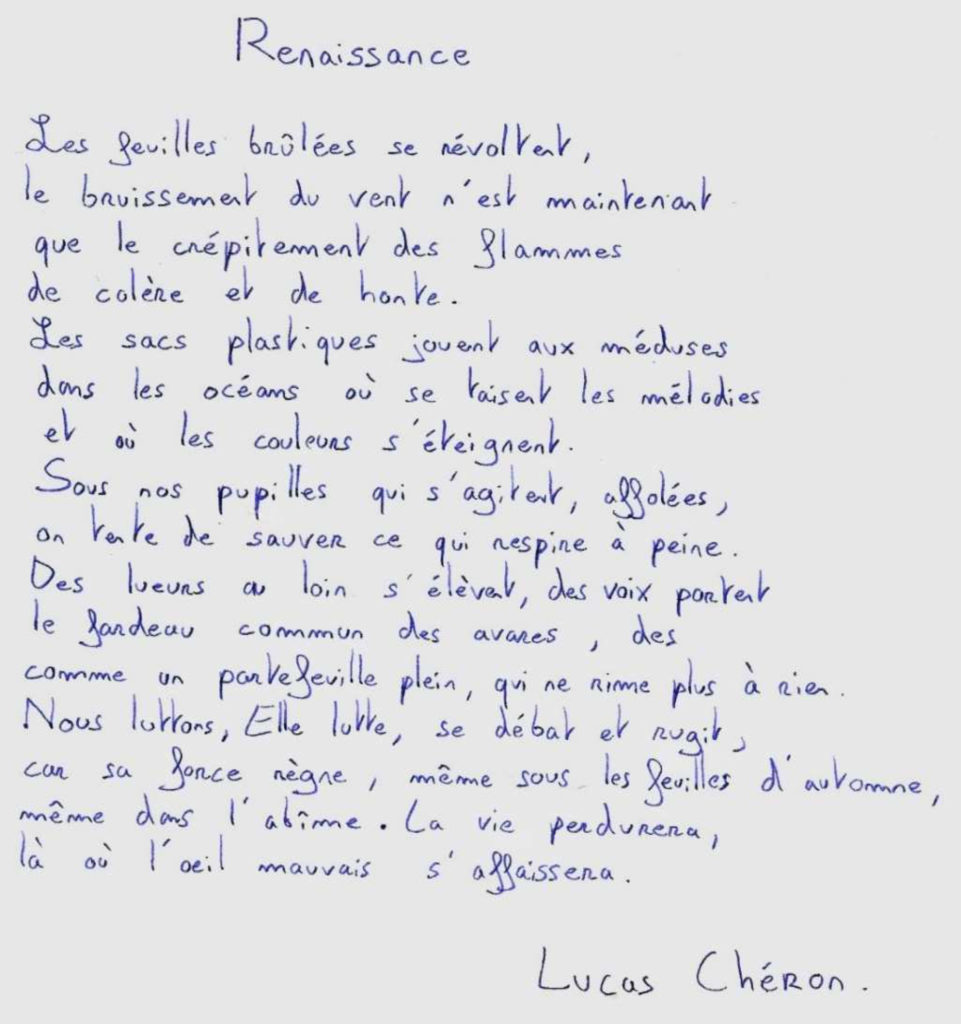 Renaissance
Les feuilles brûlées se révoltent,
le bruissement du vent n'est maintenant
que le crépitement des flammes
de colère et de honte.
Les sacs plastiques jouent aux méduses
dans les océans où se taisent les mélodies
et où les couleurs s'éteignent.
Sous nos pupilles qui s'agitent, affolées,
on tente de sauver ce qui respire à peine.
Des lueurs au loin s'élèvent, des voix portent
le fardeau commun des avares, des
comme un portefeuille plein, qui ne rime plus à rien.
Nous luttons, Elle lutte, se débat et rugit,
car sa force règne, même sous les feuilles d'automne,
même dans l'abîme. La vie perdurera,
là où l'oeil mauvais s'affaissera.
Lucas Chéron.